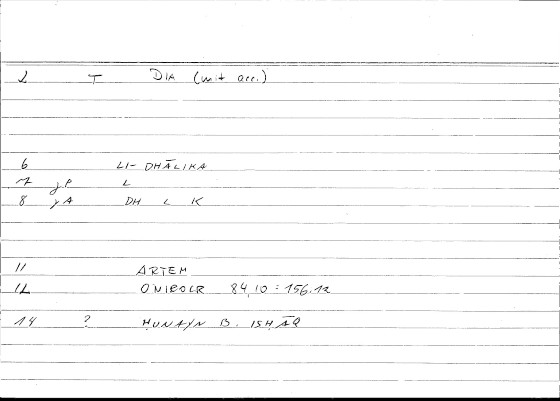 2 T DIA (mit acc.)
6 LI-DHĀLIKA
7 gP L
8 gA DH L K
11 ARTEM
12 ONIROCR 84,10 : 156.12
14 ? HUNAYN B. ISHĀQ